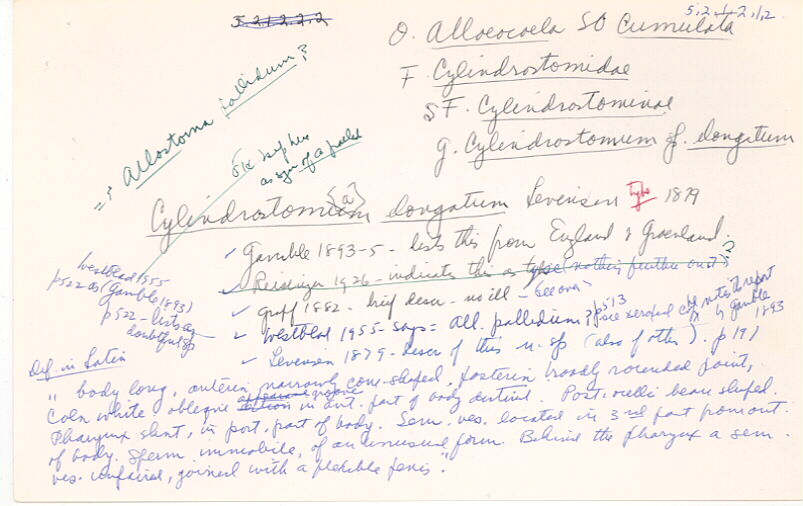 5.2.1.2.2.2
5.2.1.2.1.2
O. Alloeocoela SO Cumulata
F. Cylindrostomidae
SF. Cylindrostominae
g. Cylindrostomum f. elongatum
=? Allostoma pallidum?
OK
as syn of a pallid
Cylindrostomum {a} elongatum Levensen type 1879
✓ Gamble 1893-5 - lists this from England & Greenland.
✓ Reisinger 1926 - indicates this as type (nothing further on it) ?
✓ Graff 1882 - brief descr - no ill - see over
✓ Westblad 1955 - says = All. pallidum, ? p 513
(see xeroxed notes to report by Gamble 1893
✓ Levensen 1879 - descr of this n. sp (also of other). p 191
Westblad 1955
p 522 as (Gamble 1893)
p 522 - lists as
doubtful sp
Def. in Latin
"body long, anterin narrowly cone-shaped, posterin broadly rounded joint,
Coln white oblique groove in ant. part of body distinct. Post. melli bean shaped.
Pharynx short, in post. part of body. Sem. ves. located in 3rd part from ant.
of body. Sperm immobile, of an unusual form. Behind the pharynx a sem.
ves. unpaired, joined with a flexible penis."